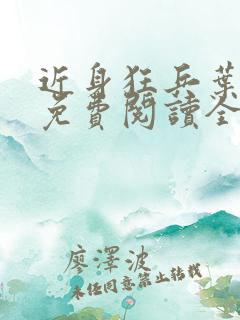 近身狂兵葉
免費閱讀全
廖澤波
未任同意禁止转载